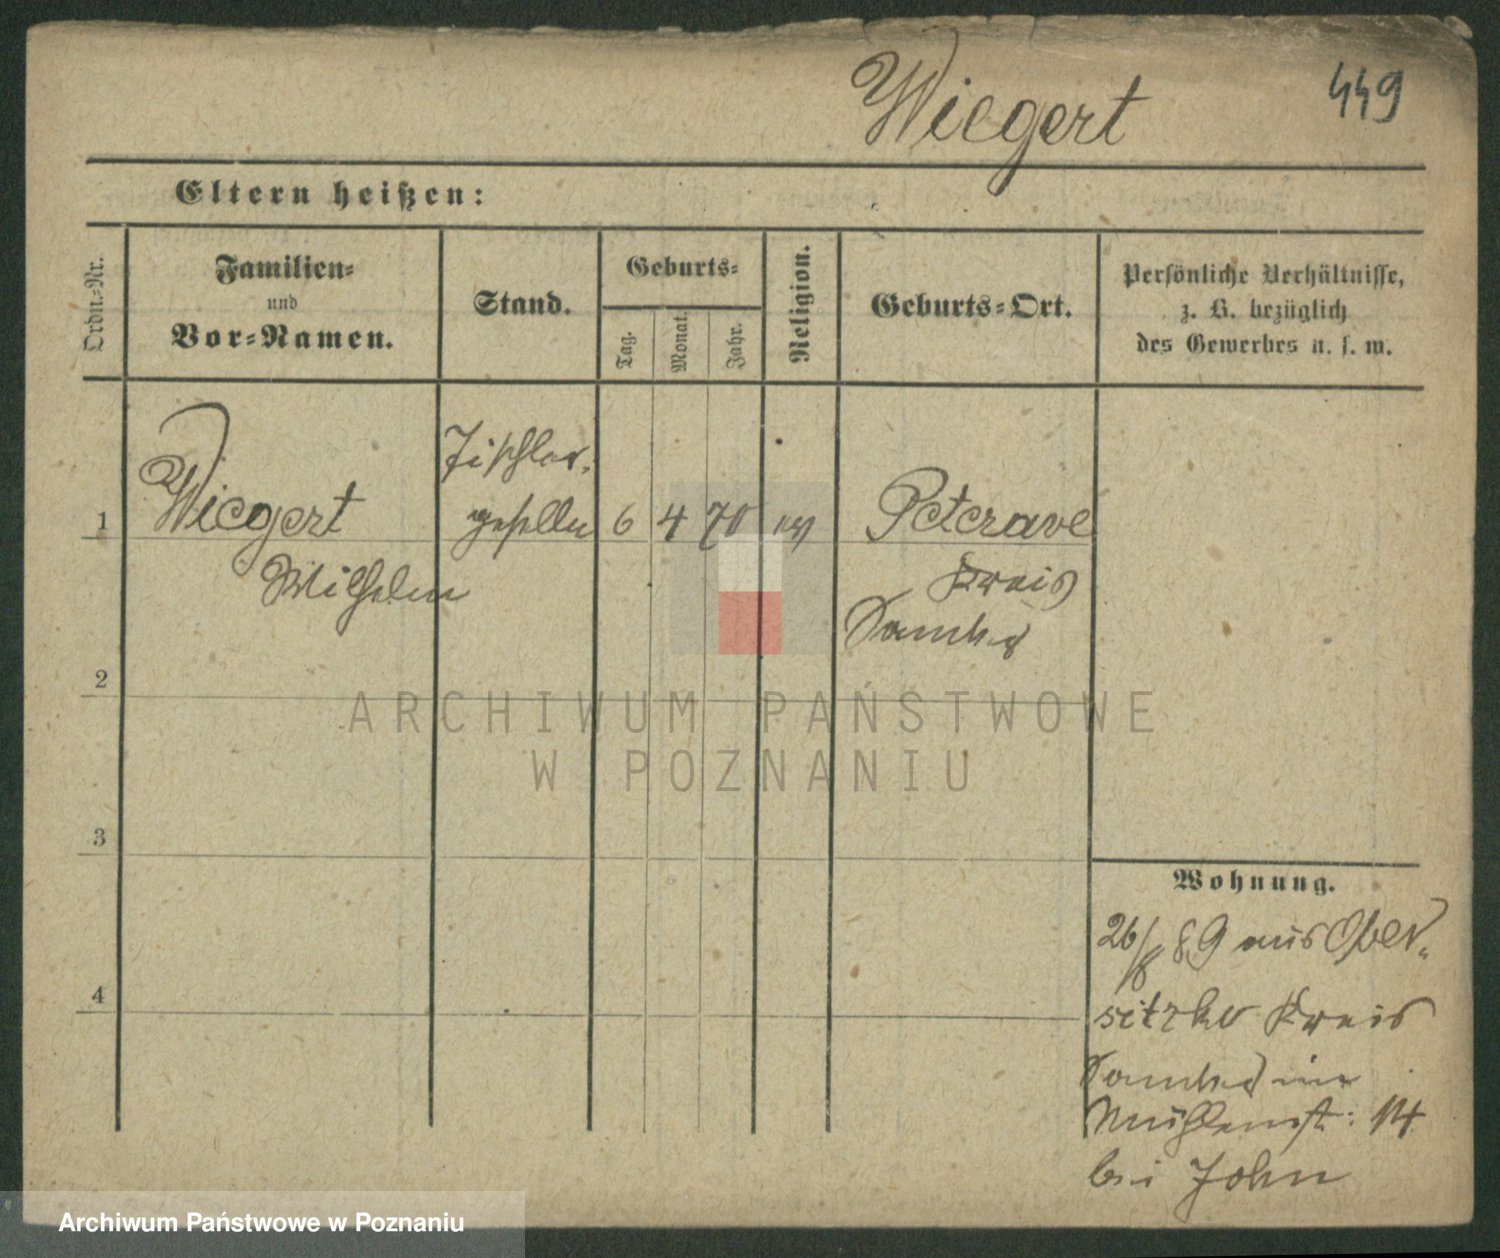 Wiegert
449
Eltern heißen:
Ordn.-Nr.
Familien-
und
Vor-Namen.
Stand.
Geburts-
Tag.
Monat.
Jahr.
Religion.
Geburts-Ort.
Persönliche Verhältnisse,
z. B. bezüglich
des Gewerbes u. s. w.
1
Wiegert
Wilhelm
Tischler-
geselle
6
4
70
ev
Peterave
Kreis
Samter
2
3
4
Wohnung.
26/8 89 aus Ober-
sitzko Kreis
Samter in
Mühlenst: 14
bei John
ARCHIWUM PAŃSTWOWE
W POZNANIU
Archiwum Państwowe w Poznaniu